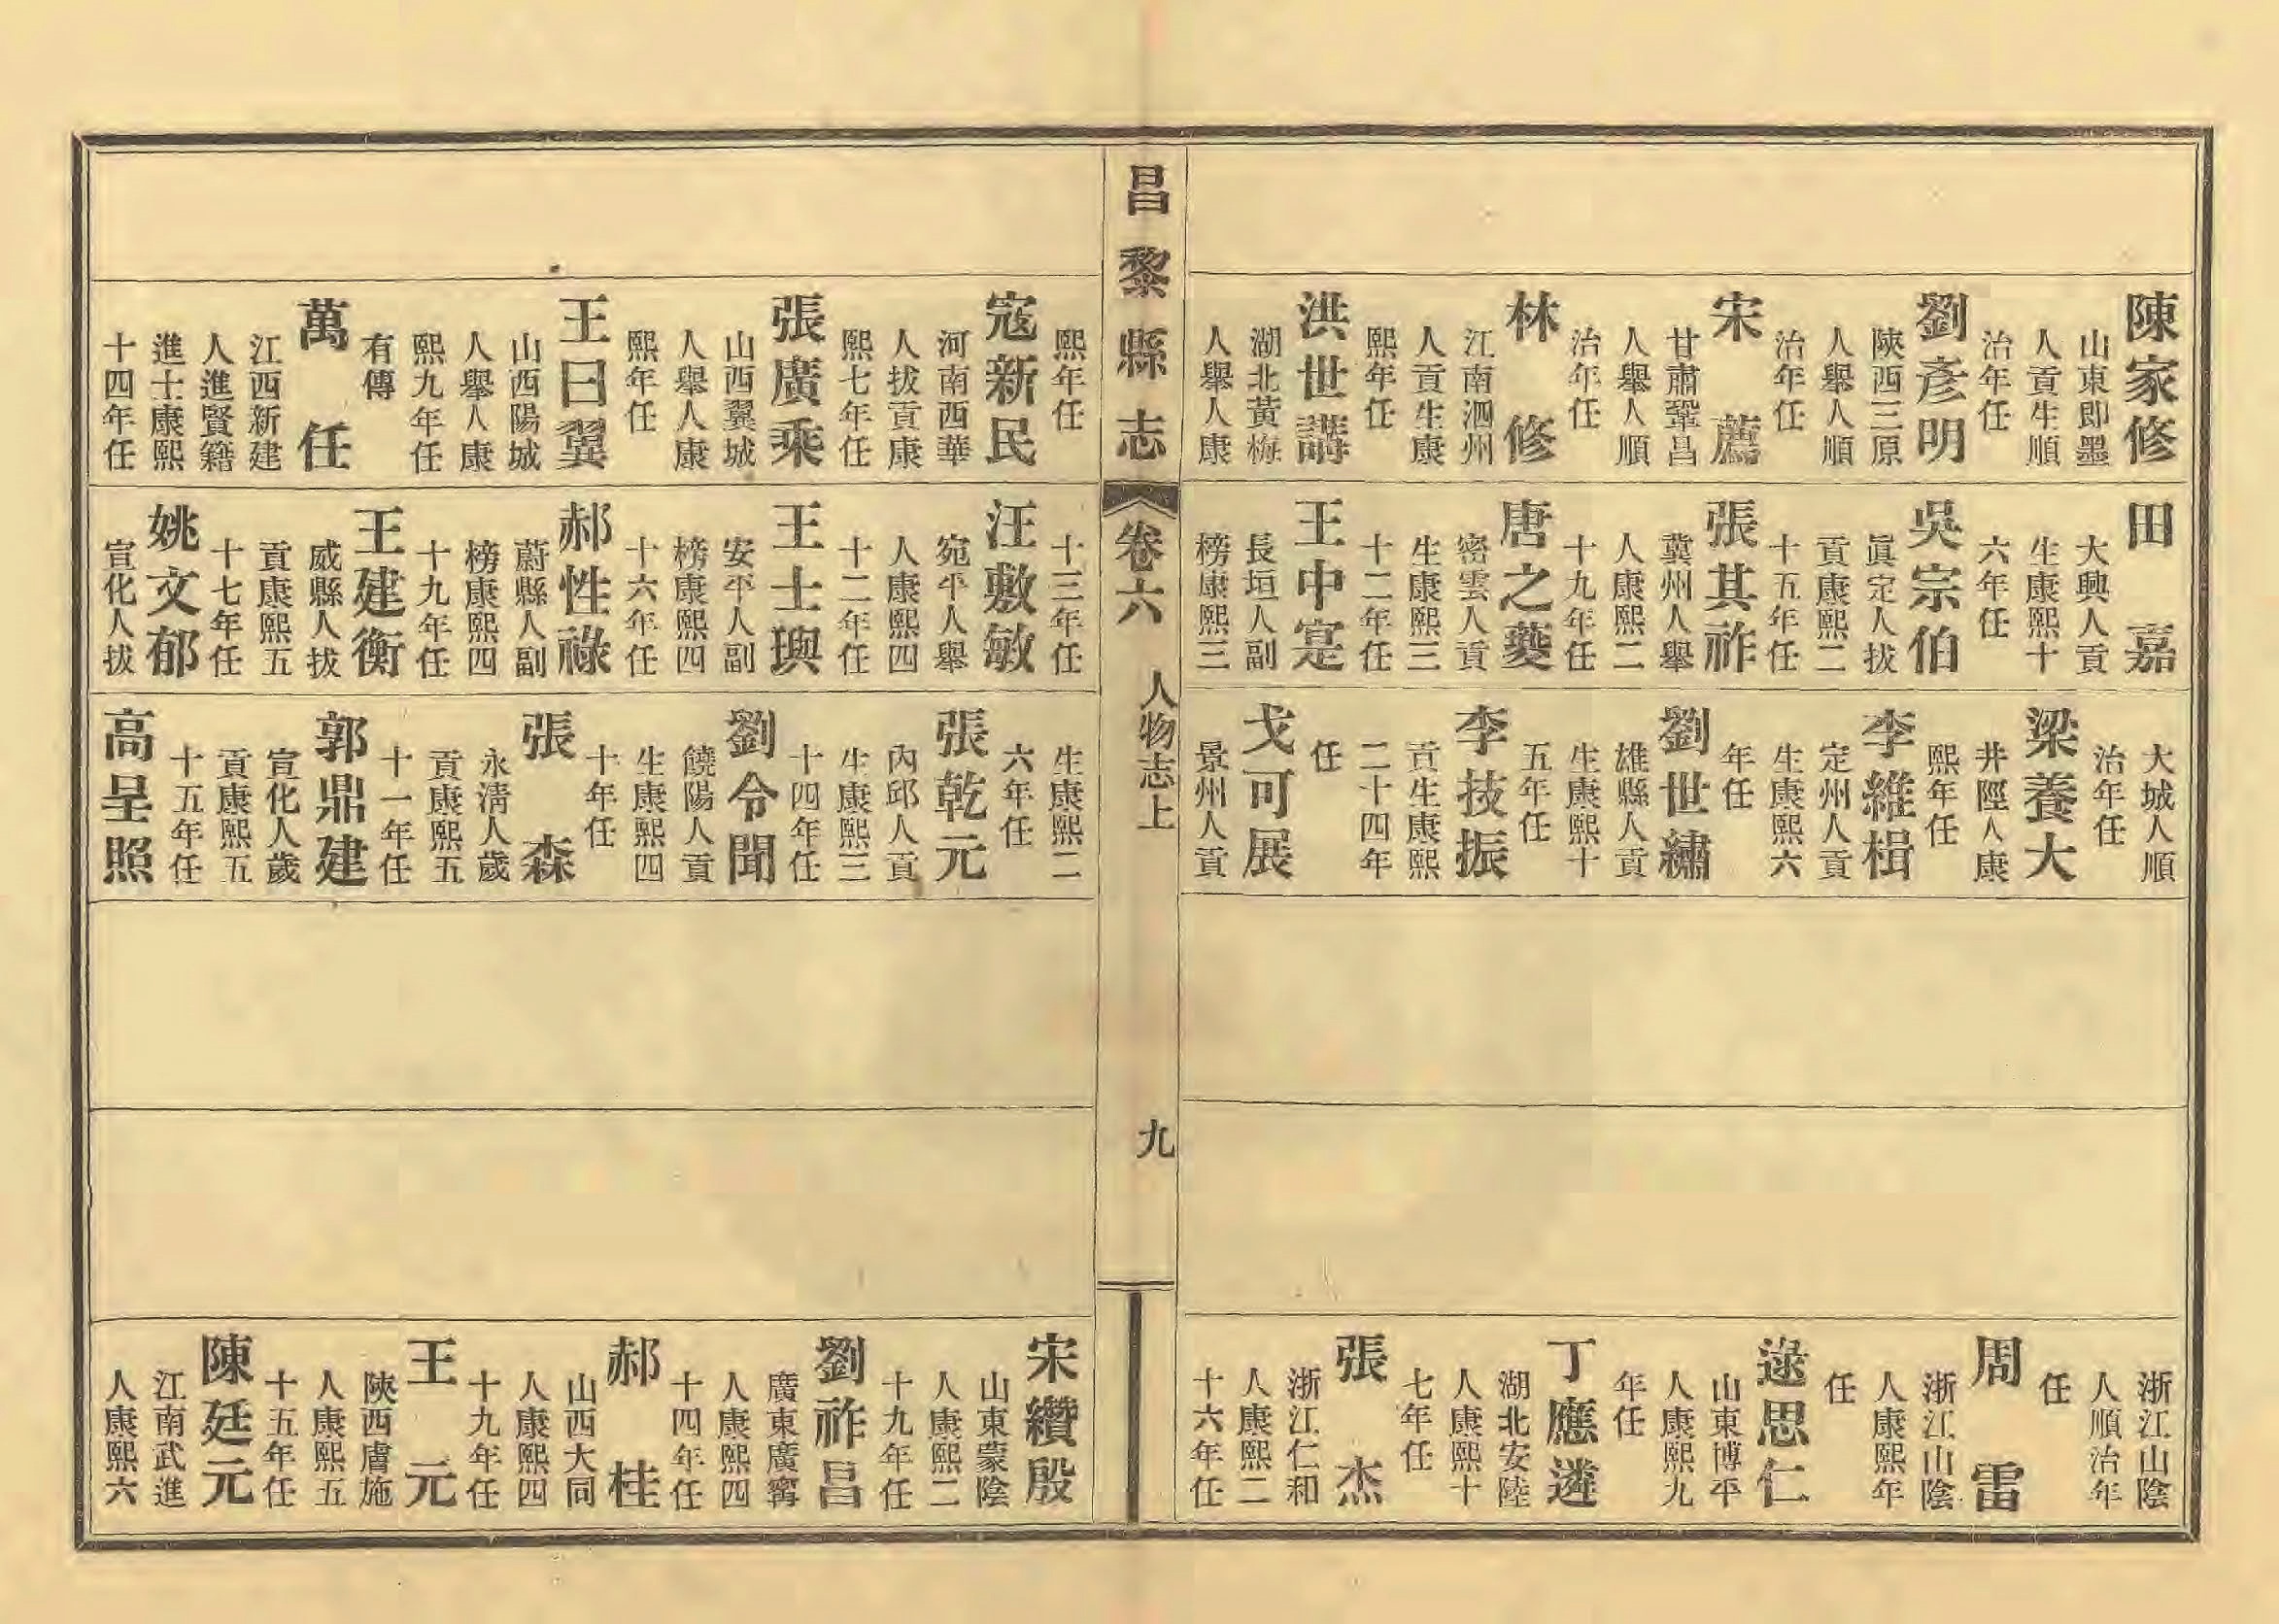 陳家修
山東即墨
人貢生順
治年任
劉彥明
陝西三原
人舉人順
治年任
宋薦
甘肅鞏昌
人舉人順
治年任
林修
江南泗州
人貢生康
熙年任
洪世講
湖北黃梅
人舉人康
田嘉
大興人貢
生康熙十
六年任
吳宗伯
眞定人拔
貢康熙二
十五年任
張其祚
冀州人舉
人康熙二
十九年任
唐之夔
密雲人貢
生康熙三
十二年任
王中寔
長垣人副
榜康熙三
大城人順
治年任
梁養大
井陘人康
熙年任
李維楫
定州人貢
生康熙六
年任
劉世繡
雄縣人貢
生康熙十
五年任
李技振
貢生康熙
二十四年
任
戈可展
景州人貢
浙江山陰
人順治年
任
周雷
浙江山陰
人康熙年
任
逯思仁
山東博平
人康熙九
年任
丁應遴
湖北安陸
人康熙十
七年任
張杰
浙江仁和
人康熙二
十六年任
昌黎縣志
卷六
人物志上
九
熙年任
寇新民
河南西華
人拔貢康
熙七年任
張廣乘
山西翼城
人舉人康
熙年任
王曰翼
山西陽城
人舉人康
熙九年任
有傳
萬任
江西新建
人進賢籍
進士康熙
十四年任
十三年任
汪敷敏
宛平人舉
人康熙四
十二年任
王士璵
安平人副
榜康熙四
十六年任
郝性祿
蔚縣人副
榜康熙四
十九年任
王建衡
威縣人拔
貢康熙五
十七年任
姚文郁
宣化人拔
生康熙二
六年任
張乾元
內邱人貢
生康熙三
十四年任
劉令聞
饒陽人貢
生康熙四
十年任
張森
永淸人歲
貢康熙五
十一年任
郭鼎建
宣化人歲
貢康熙五
十五年任
高呈照
宋纘殷
山東蒙陰
人康熙二
十九年任
劉祚昌
廣東廣寗
人康熙四
十四年任
郝桂
山西大同
人康熙四
十九年任
王元
陝西膚施
人康熙五
十五年任
陳廷元
江南武進
人康熙六